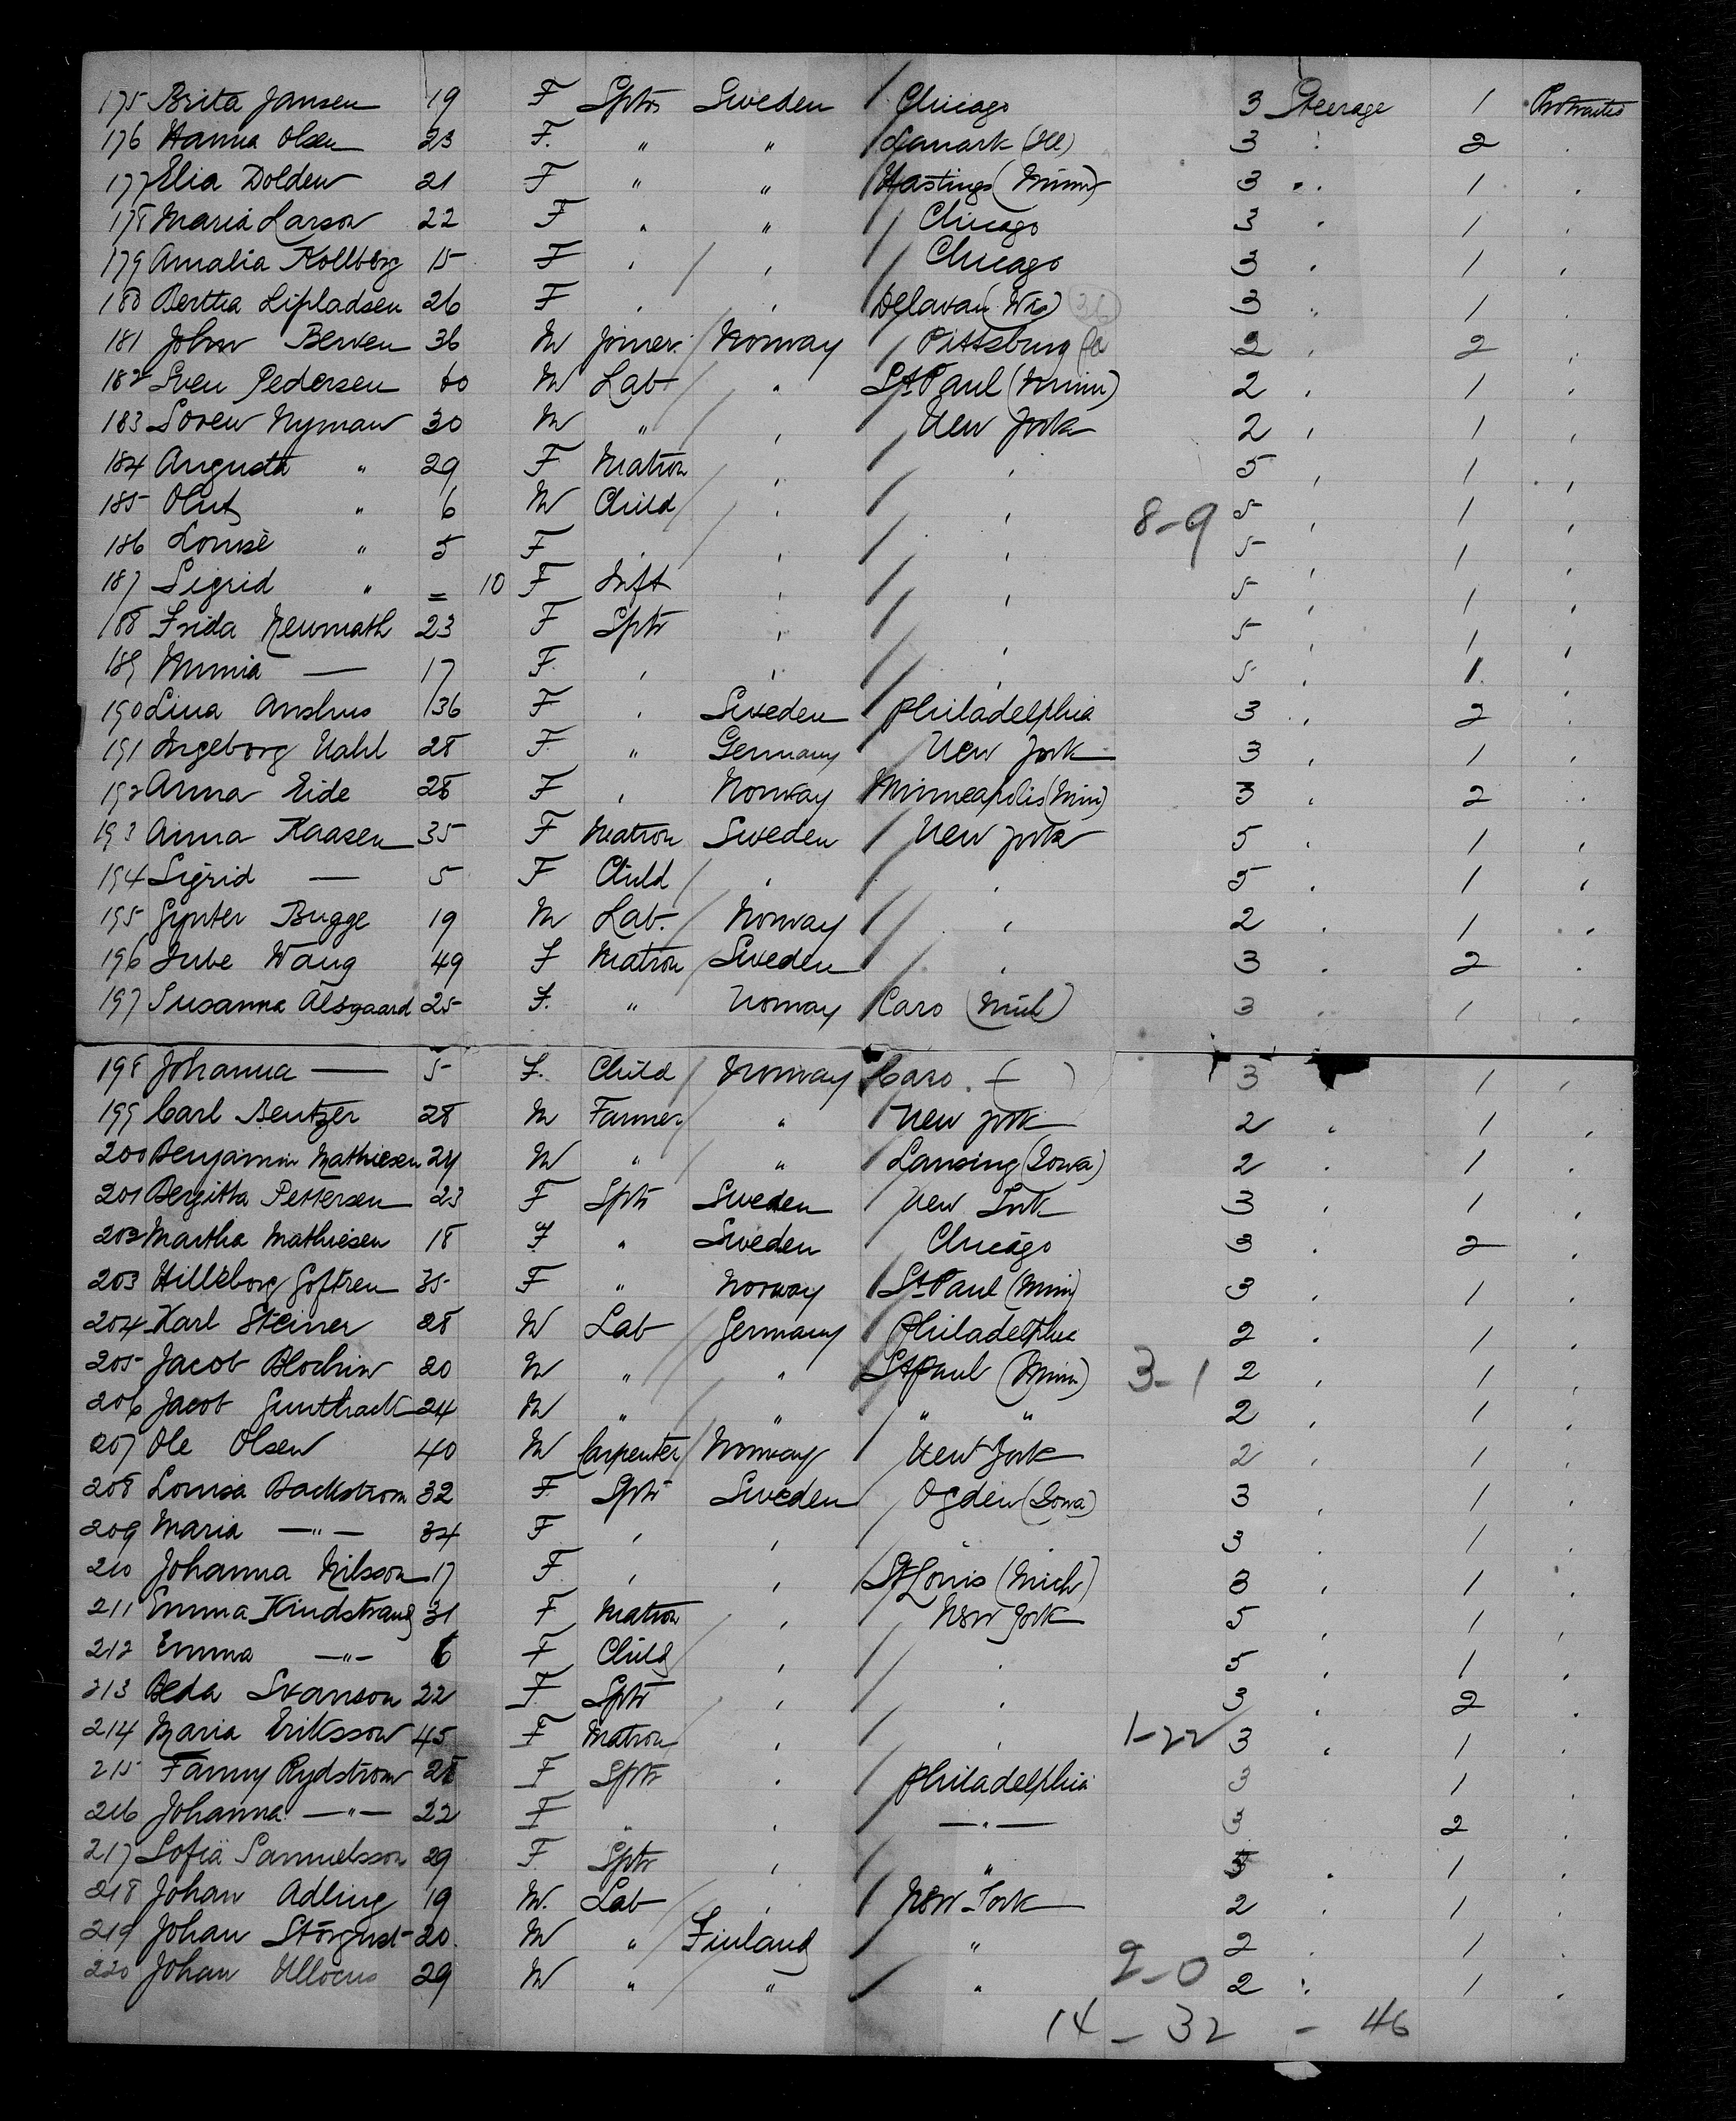 175 Brita Jansen 19 F Sptrs Sweden / Chicago 3 Steerage 1 Protracted
176 Hanna Olsen 23 F. " " Lanark (Ill) 3 : 2 .
177 Elia Dolden 21 F " " Hastings (Minn) 3 " 1 .
178 Maria Larson 22 F " " / Chicago 3 . 1 .
179 Amalia Kollberg 15 F , / , / Chicago 3 . 1 ,
180 Bertha Lipladsen 26 F , , Delavan (Wis) 3 " 1 .
181 John Berven 36 M Joiner / Norway / Pittsburg Pa 2 , 2 .
182 Sven Pedersen 60 M Lab / " St Paul (Minn) 2 , 1 .
183 Soren Nyman 30 M " / , / New York 2 , 1 ,
184 Augusta " 29 F Matron , / , 5 , 1 ,
185 " 6 M Child / , / , 8-9 5 , 1 ,
186 Louise " 5 F , , / , 5 , 1 .
187 Sigrid " = 10 F Inft , / , 5 , 1 .
188 Frida Neumath 23 F Sptr , / , 5 , 1 ,
189 — 17 F. , , / , 5 1 .
190 Lina 36 F , Sweden / Philadelphia 3 , 2 .
191 Ingeborg 28 F " Germany / New York 3 , 1 ,
192 Anna Eide 28 F , Norway Minneapolis (Min) 3 , 2 .
193 Anna Kaasen 35 F Matron Sweden / New York 5 . 1 ,
194 Sigrid — 5 F Child / , / , 5 . 1 ,
195 Bugge 19 M Lab. / Norway / , 2 . 1 .
196 Wang 49 F Matron / Sweden / , 3 . 2 .
197 Susanna Alsgaard 25 F. " Norway / Caro (Mich) 3 . 1 .
198 Johanna — 5 F. Child / Norway Caro . ( — ) 3 1 ,
199 Carl Bentzer 28 M Farmer / " / New York 2 . 1 ,
200 Benjamin Mathiesen 24 M " / " / Lansing (Iowa) 2 . 1 .
201 Bergitta Pettersen 23 F Sptr Sweden / New York 3 , 1 ,
202 Martha Mathiesen 18 F " Sweden / Chicago 3 . 2 .
203 Hilleborg 35 F " Norway / St Paul (Minn) 3 , 1 .
204 Karl Steiner 28 M Lab / Germany / Philadelphia 2 . 1 .
205 Jacob Blochin 20 M " / " St Paul (Minn) 3-1 2 , 1 .
206 Jacob 24 M " / " / " " 2 , 1 .
207 Ole Olsen 40 M Carpenter / Norway / New York 2 , 1 .
208 Louisa Backstrom 32 F Sptr Sweden / Ogden (Iowa) 3 , 1 .
209 Maria —"— 34 F , , / , 3 . 1 .
210 Johanna Nilsson 17 F , , St Louis (Mich) 3 , 1 .
211 Emma Kindstrand 31 F Matron / , / New York 5 , 1 ,
212 Emma —"— 6 F Child / , / , 5 , 1 .
213 Beda Svanson 22 F Sptr / , / , 3 , 2 .
214 Maria Eriksson 45 F Matron , / , 1-22 3 . 1 .
215 Fanny Rydstrom 28 F Sptr . / Philadelphia 3 1 .
216 Johanna —"— 22 F " , / —"— 3 2 .
217 Sofia Samuelsson 29 F. Sptr , / " 3 . 1 .
218 Johan Adling 19 M. Lab / , / New York 2 . 1 .
219 Johan 20. M " / Finland / " 2 . 1 .
220 Johan 29 M " / " / " 2-0 2 : 1 .
14 - 32 - 46